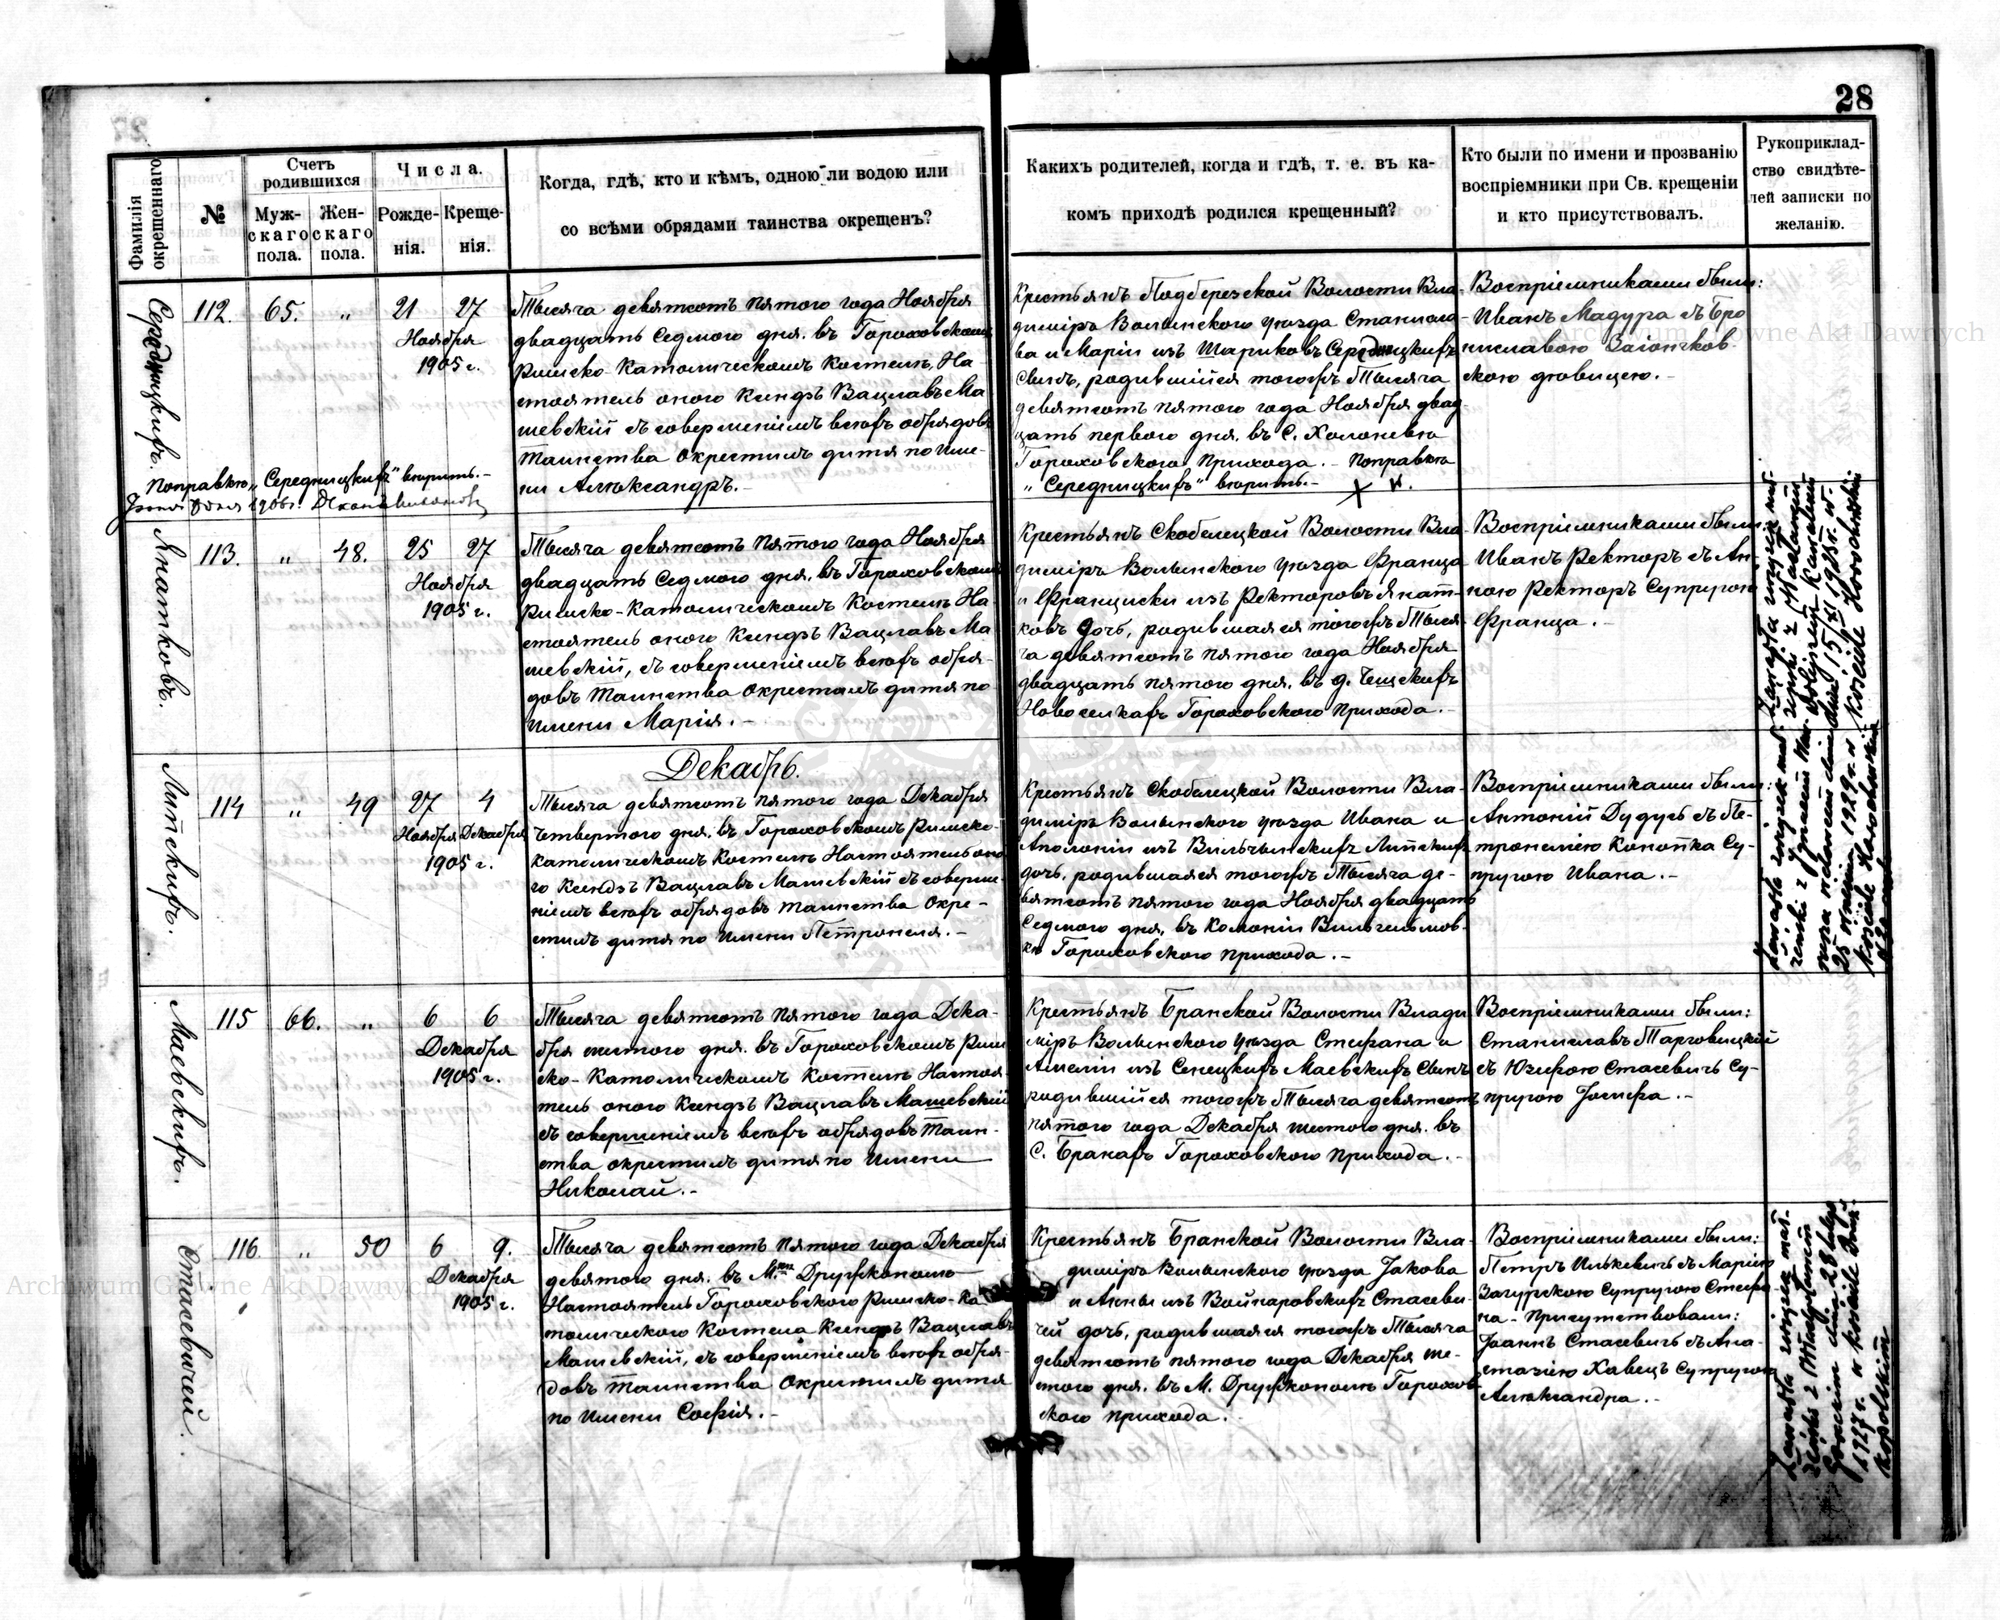 28
Фамилія окрещеннаго.
№
Счетъ родившихся
Мужскаго пола.
Женскаго пола.
Числа.
Рожденія.
Крещенія.
Когда, гдѣ, кто и кѣмъ, одною ли водою или
со всѣми обрядами таинства окрещенъ?
Какихъ родителей, когда и гдѣ, т. е. въ ка-
комъ приходѣ родился крещенный?
Кто были по имени и прозванію
воспріемники при Св. крещеніи
и кто присутствовалъ.
Рукоприклад-
ство свидѣте-
лей записки по
желанію.
Середницкихъ.
112. 65. „ 21 27
Ноября
1905 г.
Тысяча девятсотъ пятого года Ноября
двадцать седмого дня. въ Гороховскомъ
Римско-Католическомъ Костелѣ, На-
стоятель оного Ксендзъ Вацлавъ Ма-
шевскій съ совершеніемъ всѣхъ обрядовъ
Таинства Окрестилъ дитя по име-
ни Александръ.-
Крестьянъ Подберезской Волости Вла-
димiръ Волынского уѣзда Станисла-
ва и Маріи изъ Шариковъ Середницкихъ
Сынъ, родившійся тогожъ Тысяча
девятсотъ пятого года Ноября двад-
цать первого дня. въ С. Холоневѣ
Гороховского Прихода.- Поправка
„Середницкихъ" вѣрить.-
Воспріемниками были:
Иванъ Мадура съ Бро-
ниславою Загончков-
скою дѣвицею.-
Поправка „Середницкихъ" вѣрить.-
Янатковъ.
113. „ 48. 25 27
Ноября
1905 г.
Тысяча девятсотъ пятого года Ноября
двадцать седмого дня. въ Гороховскомъ
Римско-Католическомъ Костелѣ На-
стоятель оного Ксендзъ Вацлавъ Ма-
шевскій, съ совершеніемъ всѣхъ обря-
довъ Таинства Окрестилъ дитя по
имени Марія.-
Крестьянъ Скобелецкой Волости Вла-
димiръ Волынского уѣзда Франца
и Францишки изъ Ректоровъ Янат-
ковъ дочь, родившаяся тогожъ Тыся-
ча девятсотъ пятого года Ноября
двадцать пятого дня. въ д. Чешскихъ
Новоселкахъ Гороховского Прихода.-
Воспріемниками были:
Иванъ Ректоръ съ Ан-
ною Ректоръ Супругою
Франца.-
Декабрь.
Липскихъ.
114 „ 49 27 4
Ноября Декабря
1905 г.
Тысяча девятсотъ пятого года Декабря
четвертого дня. въ Гороховскомъ Римско-
Католическомъ Костелѣ Настоятель оно-
го Ксендзъ Вацлавъ Машевскій съ соверше-
ніемъ всѣхъ обрядовъ Таинства Окре-
стилъ дитя по имени Петронеля.-
Крестьянъ Скобелецкой Волости Вла-
димiръ Волынского уѣзда Ивана и
Аполоніи изъ Вильчынскихъ Липскихъ
дочь, родившаяся тогожъ Тысяча де-
вятсотъ пятого года Ноября двадцать
Седмого дня. въ Колоніи Вильгельмов-
кѣ Гороховского прихода.-
Воспріемниками были:
Антоній Дудусь съ Пе-
тронелею Конопка Су-
пругою Ивана.-
Маевскихъ.
115 66. „ 6 6
Декабря
1905 г.
Тысяча девятсотъ пятого года Дека-
бря шестого дня. въ Гороховскомъ Рим-
ско-Католическомъ Костелѣ Настоя-
тель оного Ксендзъ Вацлавъ Машевскій
съ совершеніемъ всѣхъ обрядовъ Таин-
ства окрестилъ дитя по имени
Николай.-
Крестьянъ Бранской Волости Влади-
мiръ Волынского уѣзда Стефана и
Амеліи изъ Сенецкихъ Маевскихъ Сынъ
родившійся тогожъ Тысяча девятсотъ
пятого года Декабря шестого дня. въ
С. Бранахъ Гороховского Прихода.-
Воспріемниками были:
Станиславъ Тарговицкій
съ Юзефою Стасевичъ Су-
пругою Іосифа.-
Стасевичей.
116 „ 50 6 9.
Декабря
1905 г.
Тысяча девятсотъ пятого года Декабря
девятого дня. въ М. Дружкополю
Настоятель Гороховского Римско-Ка-
толического Костела Ксендзъ Вацлавъ
Машевскій, съ совершеніемъ всѣхъ обря-
довъ Таинства Окрестилъ дитя
по имени Софія.-
Крестьянъ Бранской Волости Вла-
димiръ Волынского уѣзда Іакова
и Анны изъ Войнаровскихъ Стасеви-
чей дочь, родившаяся тогожъ Тысяча
девятсотъ пятого года Декабря ше-
стого дня. въ М. Дружкополѣ Горохов-
ского прихода.-
Воспріемниками были:
Петръ Илькевичъ съ Маріею
Загурскою Супругою Стефа-
на.- Присутствовали:
Іоаннъ Стасевичъ съ Ана-
стазіею Хавецъ Супругою
Александра.-
Zawarła związek mał-
żeński z
Archiwum Główne Akt Dawnych
Archiwum Główne Akt Dawnych